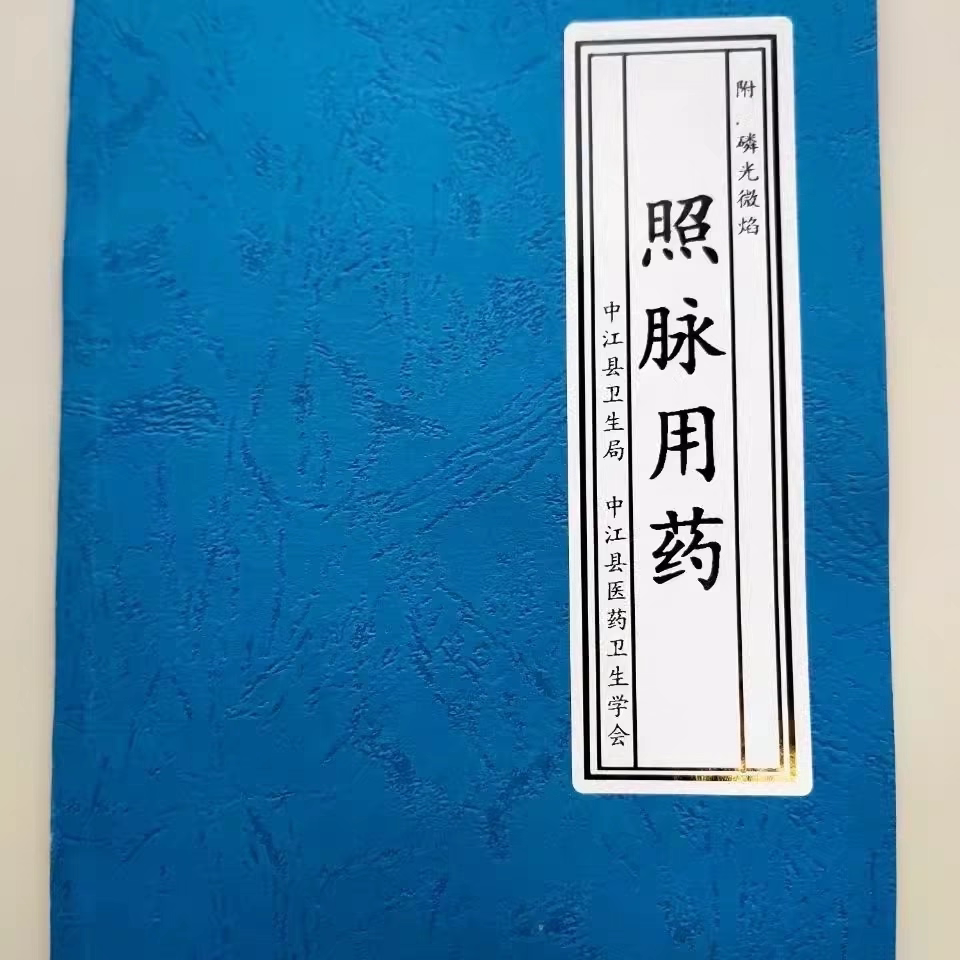 附.磷光微焰
照脉用药
中江县卫生局 中江县医药卫生学会